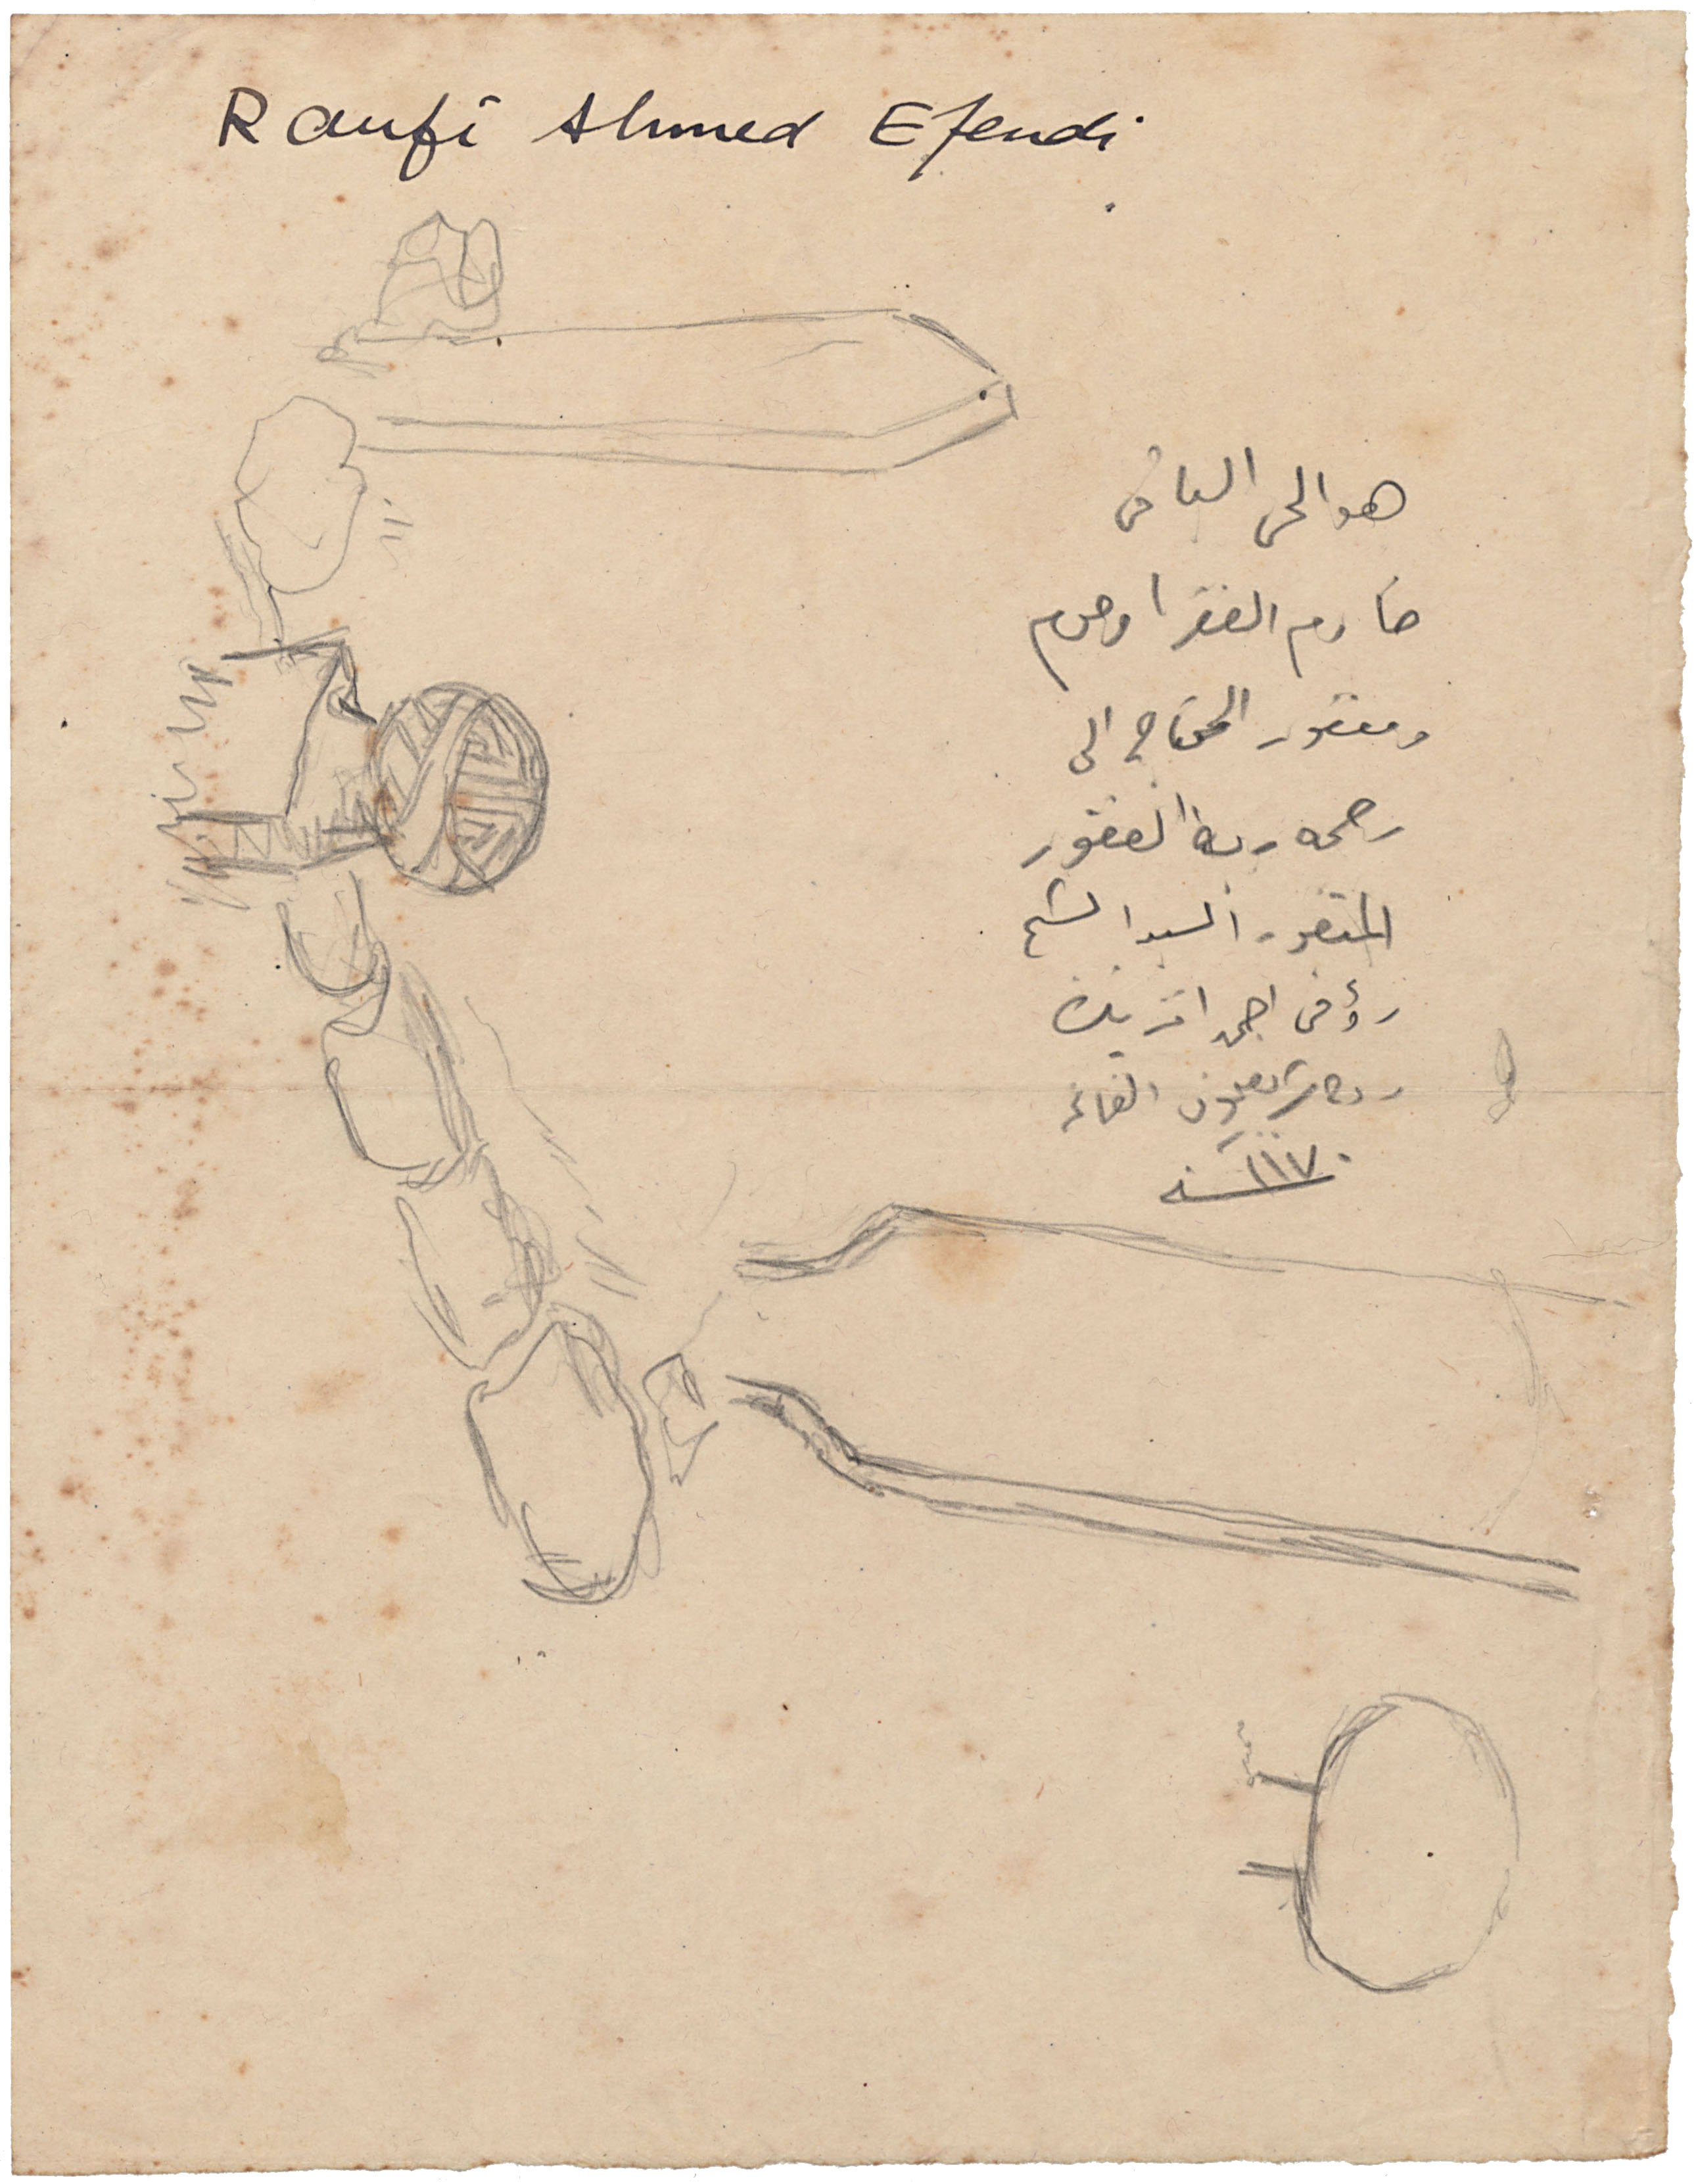 Raufî Ahmed Efendi
هو الحى الباقى
خادم الفقرا وم
ومغفور المحتاج الى
رحمه ربه الغفور
المغفور السيد الشيخ
رؤفى احمد افندينك
الفاتحه
سنه ١١٧٠